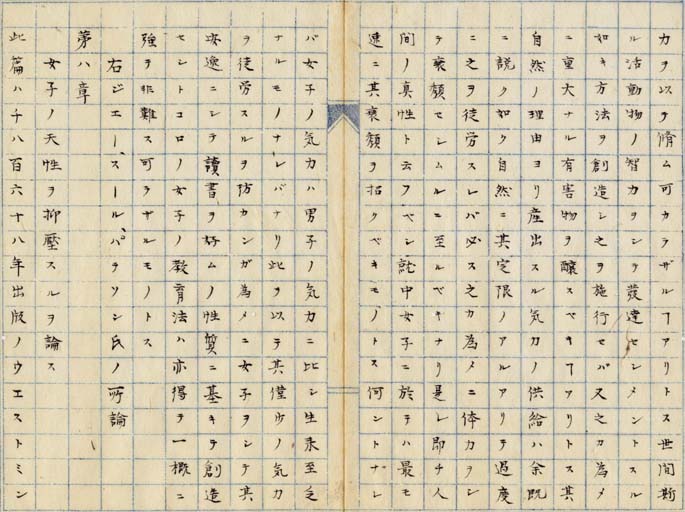 力ヲ以テ脩ム可カラザルヿアリトス世間斯
ル活動物ノ智力ヲシテ發達セシメントスル
如キ方法ヲ創造シ之ヲ施行セバ又之カ為メ
ニ重大ナル有害物ヲ醸スベキヿアリトス其
自然ノ理由ヨリ産出スル気力ノ供給ハ余既
ニ説ク如ク自然ニ其定限ノアルアリテ過度
ニ之ヲ徒労スレバ必ス之カ為メニ体力ヲシ
テ衰頽セシムルニ至ルベキナリ是レ即チ人
間ノ真性ト云フベシ就中女子ニ於テハ最モ
速ニ其衰頽ヲ招クベキモノトス何ントナレ
バ女子ノ気力ハ男子ノ気力ニ比シ生来至乏
ナルモノナレバナリ此ヲ以テ其僅少ノ気力
ヲ徒労スルヲ防カンガ為メニ女子ヲシテ其
安逸ニシテ讀書ヲ好ムノ性質ニ基キテ創造
セントコロノ女子ノ教育法ハ亦得テ一概ニ
強テ非難ス可ラザルモノトス
右ジエー、スールバ、パテソン氏ノ所論
第八章
女子ノ天性ヲ抑壓スルヲ論ス
此篇ハ千八百六十八年出版ノウエストミン